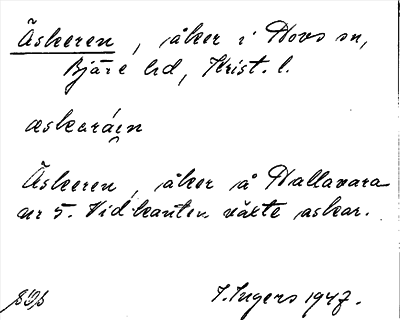 Äskeren, åker i Hovs sn,
Bjäre hd, Krist. l.
æskaráın
Äskeren, åker å Hallavara
nr 5. Vid kanten växte askar.
I. Ingers 1947.